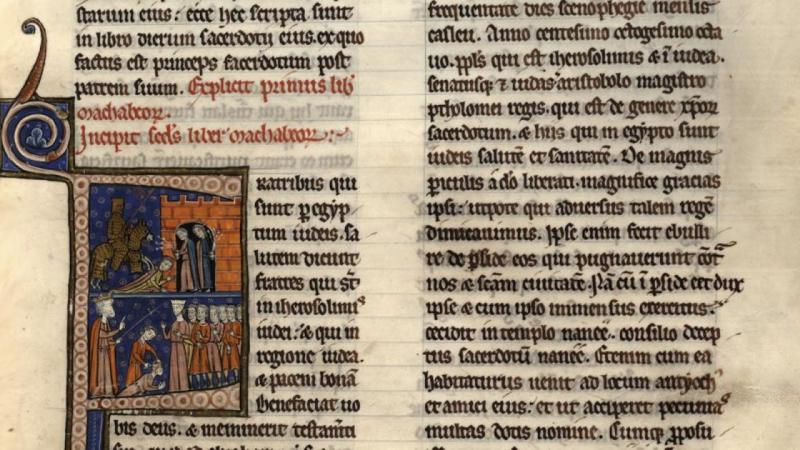 starum eius: ecce hec scripta sunt
in libro dierum sacerdotii eius. ex quo
factus est princeps sacerdotum post
patrem suum. Explicit primus lib
machabeor.
Incipit scds liber machabeor:
ratribus qui
sunt p egyp
tum iudeis. sa
lutem dicunt
fratres qui st
in iherosolimis
iudei: & qui in
regione iudea.
& pacem bonā
Benefaciat uo
bis deus. & meminerit testamti
frequentate dies scenophegie mensis
casleu. Anno centesimo octogesimo octa
uo. ppls qui est iherosolimis & ī iudea.
senatusq; ⁊ iudas aristobolo magistro
ptholomei regis. qui est de genere xpor
sacerdotum. & hiis qui in egypto sunt
iudeis salutē et sanitatē. De magnis
piculis a dō liberati. magnifice gracias
ipsi: utpote qui aduersus talem regē
dimicauimus. Ipse enim fecit ebulli
re de pside eos qui pugnauerunt cōt
nos & scām ciuitatē. Nā cū ī pside eet dux
ipse & cum ipso immensus exercitus.
cecidit in templo nanee. consilio decep
tus sacerdotū nanee. Etenim cum ea
habitaturus uenit ad locum antyoch
et amici eius: et ut acciperet pecunias
multas dotis nomine. Cumq; pposu